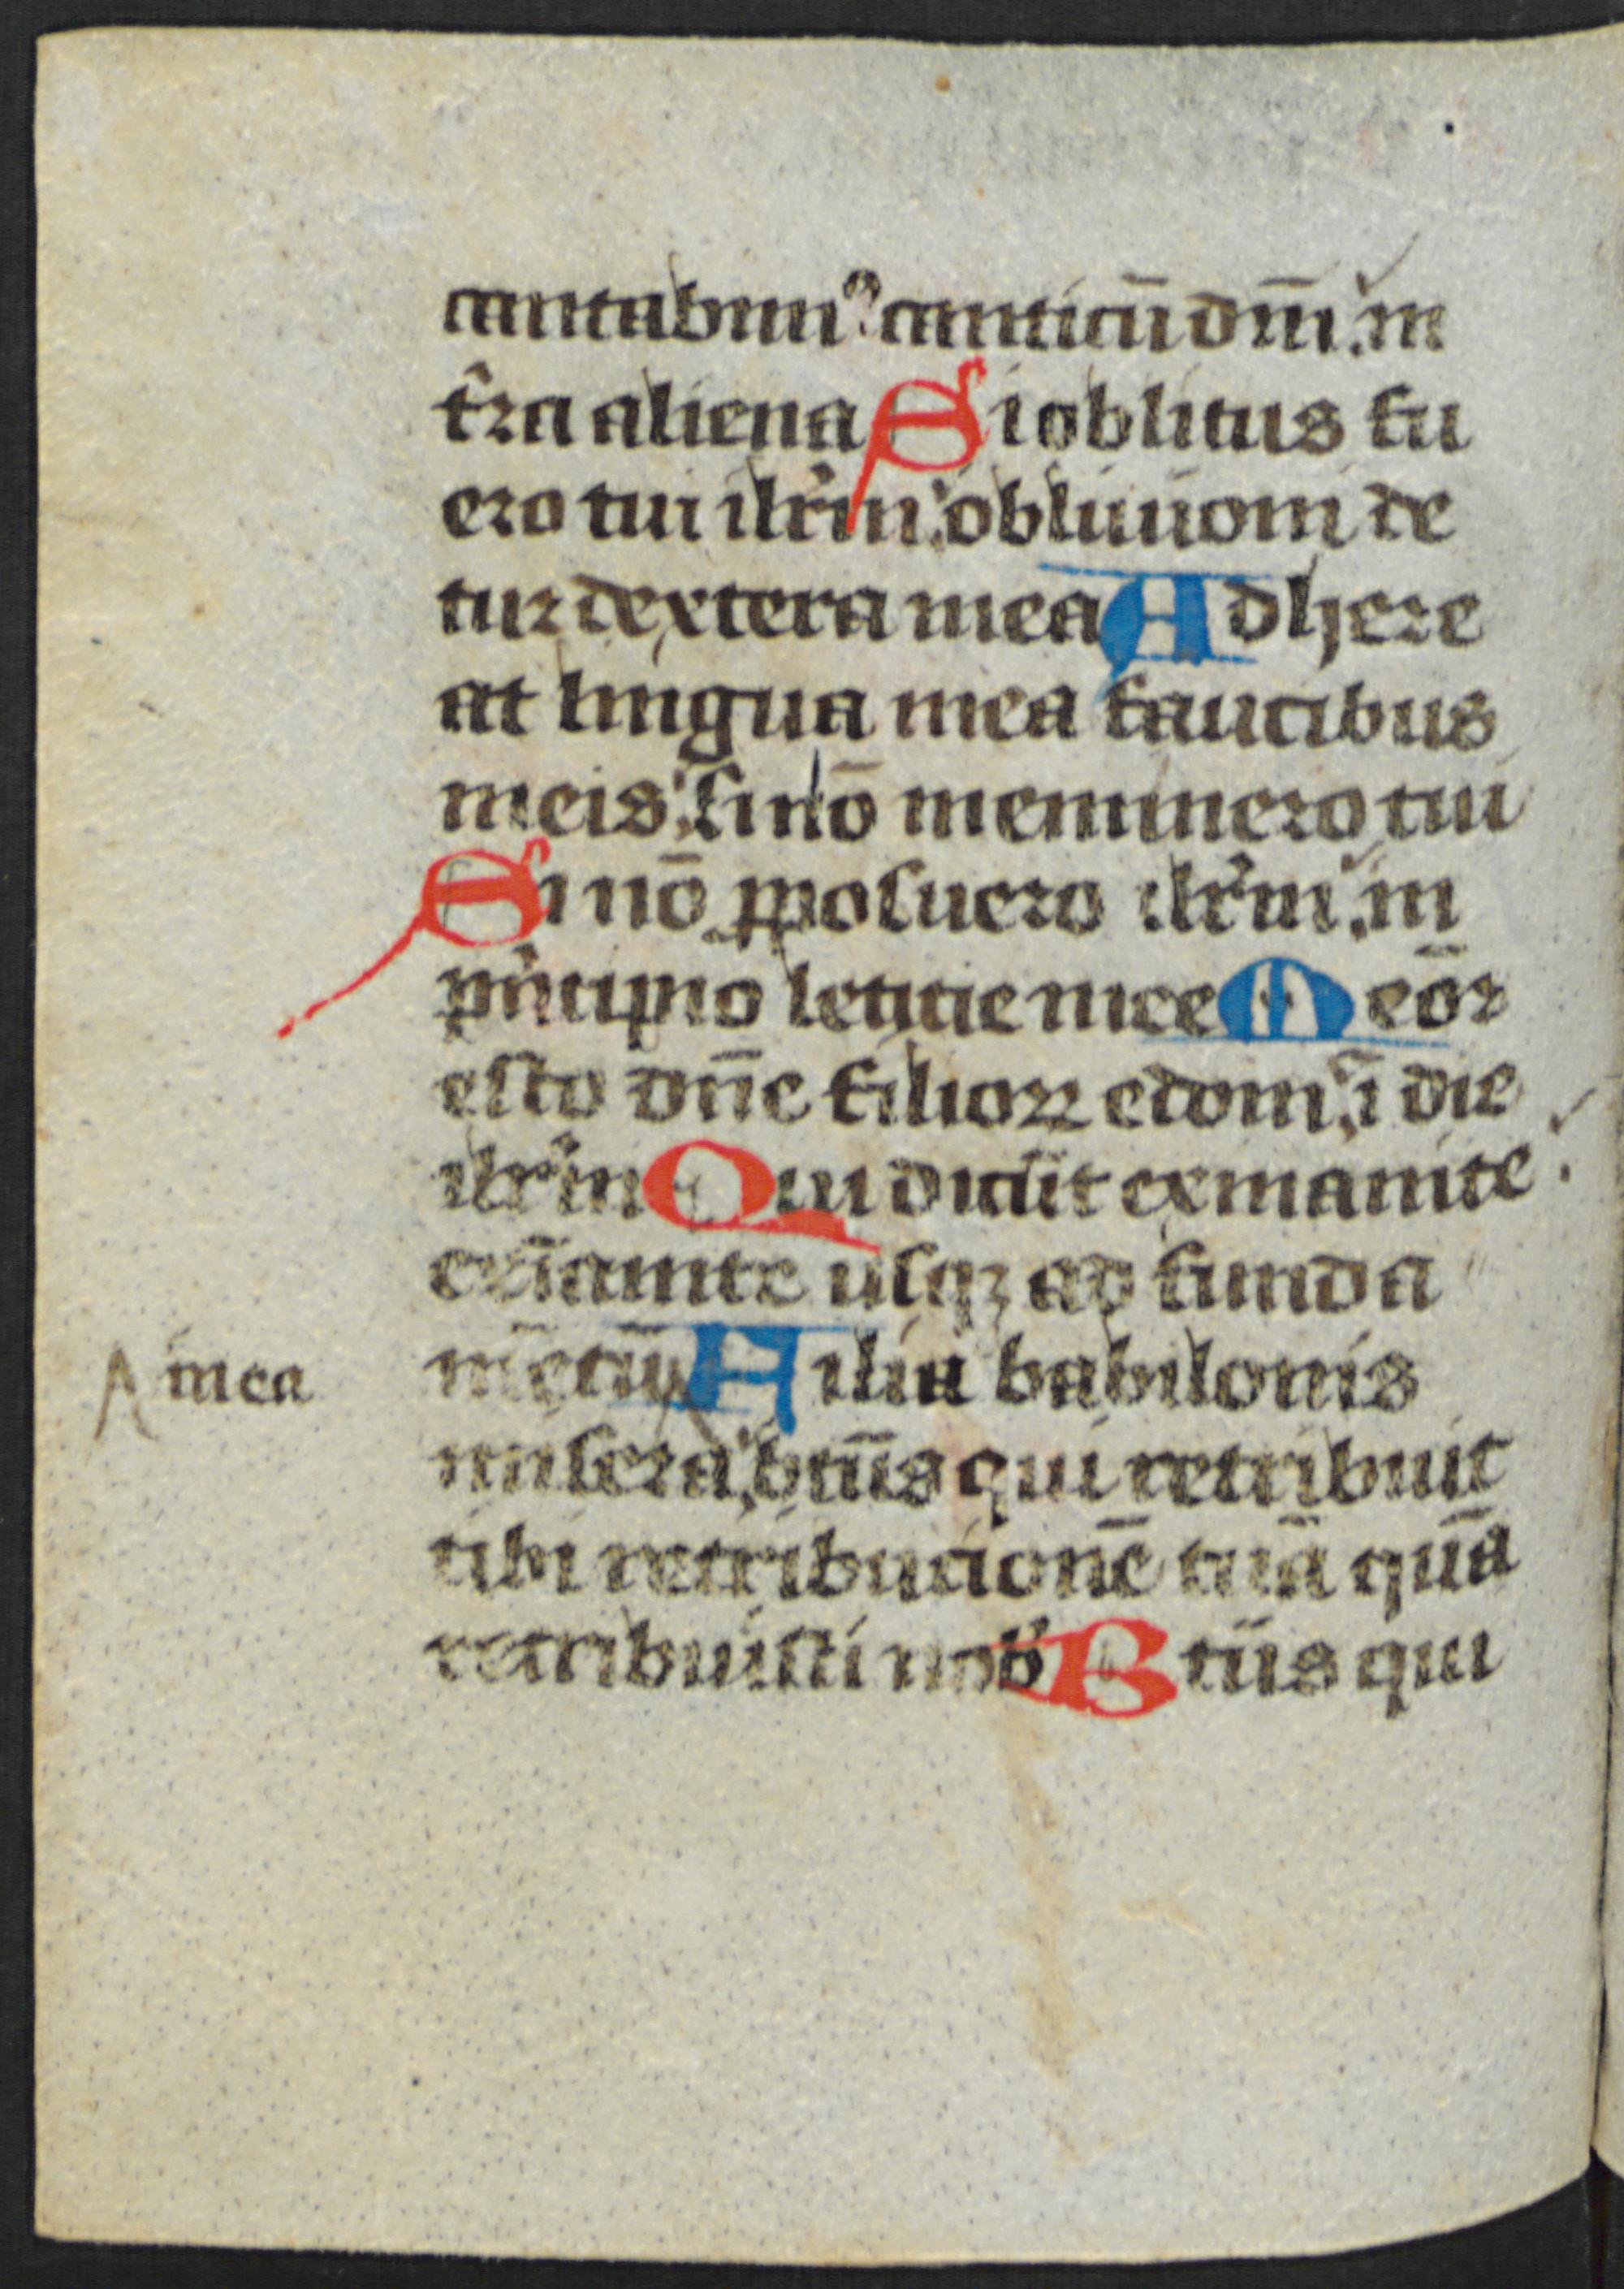 cantabim⁹ canticū dn̄i. in
t̄ra aliena Si oblitus fu
ero tui ilr̄m. obliuioni de
tur dextera mea Adhere
at lingua mea faucibus
meis. si nō meminero tui
Si nō ꝓposuero ilr̄m. in
pͥncipio leticie mee Meōr
esto dn̄e filioꝝ edom. ī die
ilr̄m Qui dicūt exinanite.
exīanite usqꝫ ad funda
mētū Filia babilonis
mea
misera. bt̄us qui retribuit
tibi retribucionē tuā quā
retribuisti nob̄ Bt̄us qui